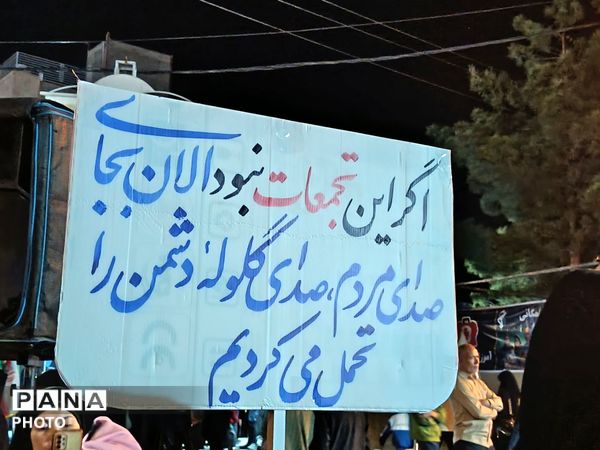 اگر این تجمعات نبود الان بجای
صدای مردم، صدای گلولهٔ دشمن را
تحمل می کردیم
PANA
PHOTO